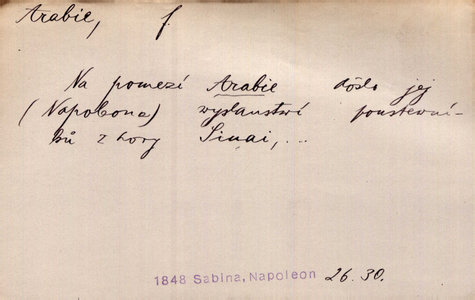 Arabie, f.
Na pomezí Arabie došlo jej
(Napoleona) vyslanství poustevní-
ků z hory Sinai,...
1848 Sabina, Napoleon 26. 30.